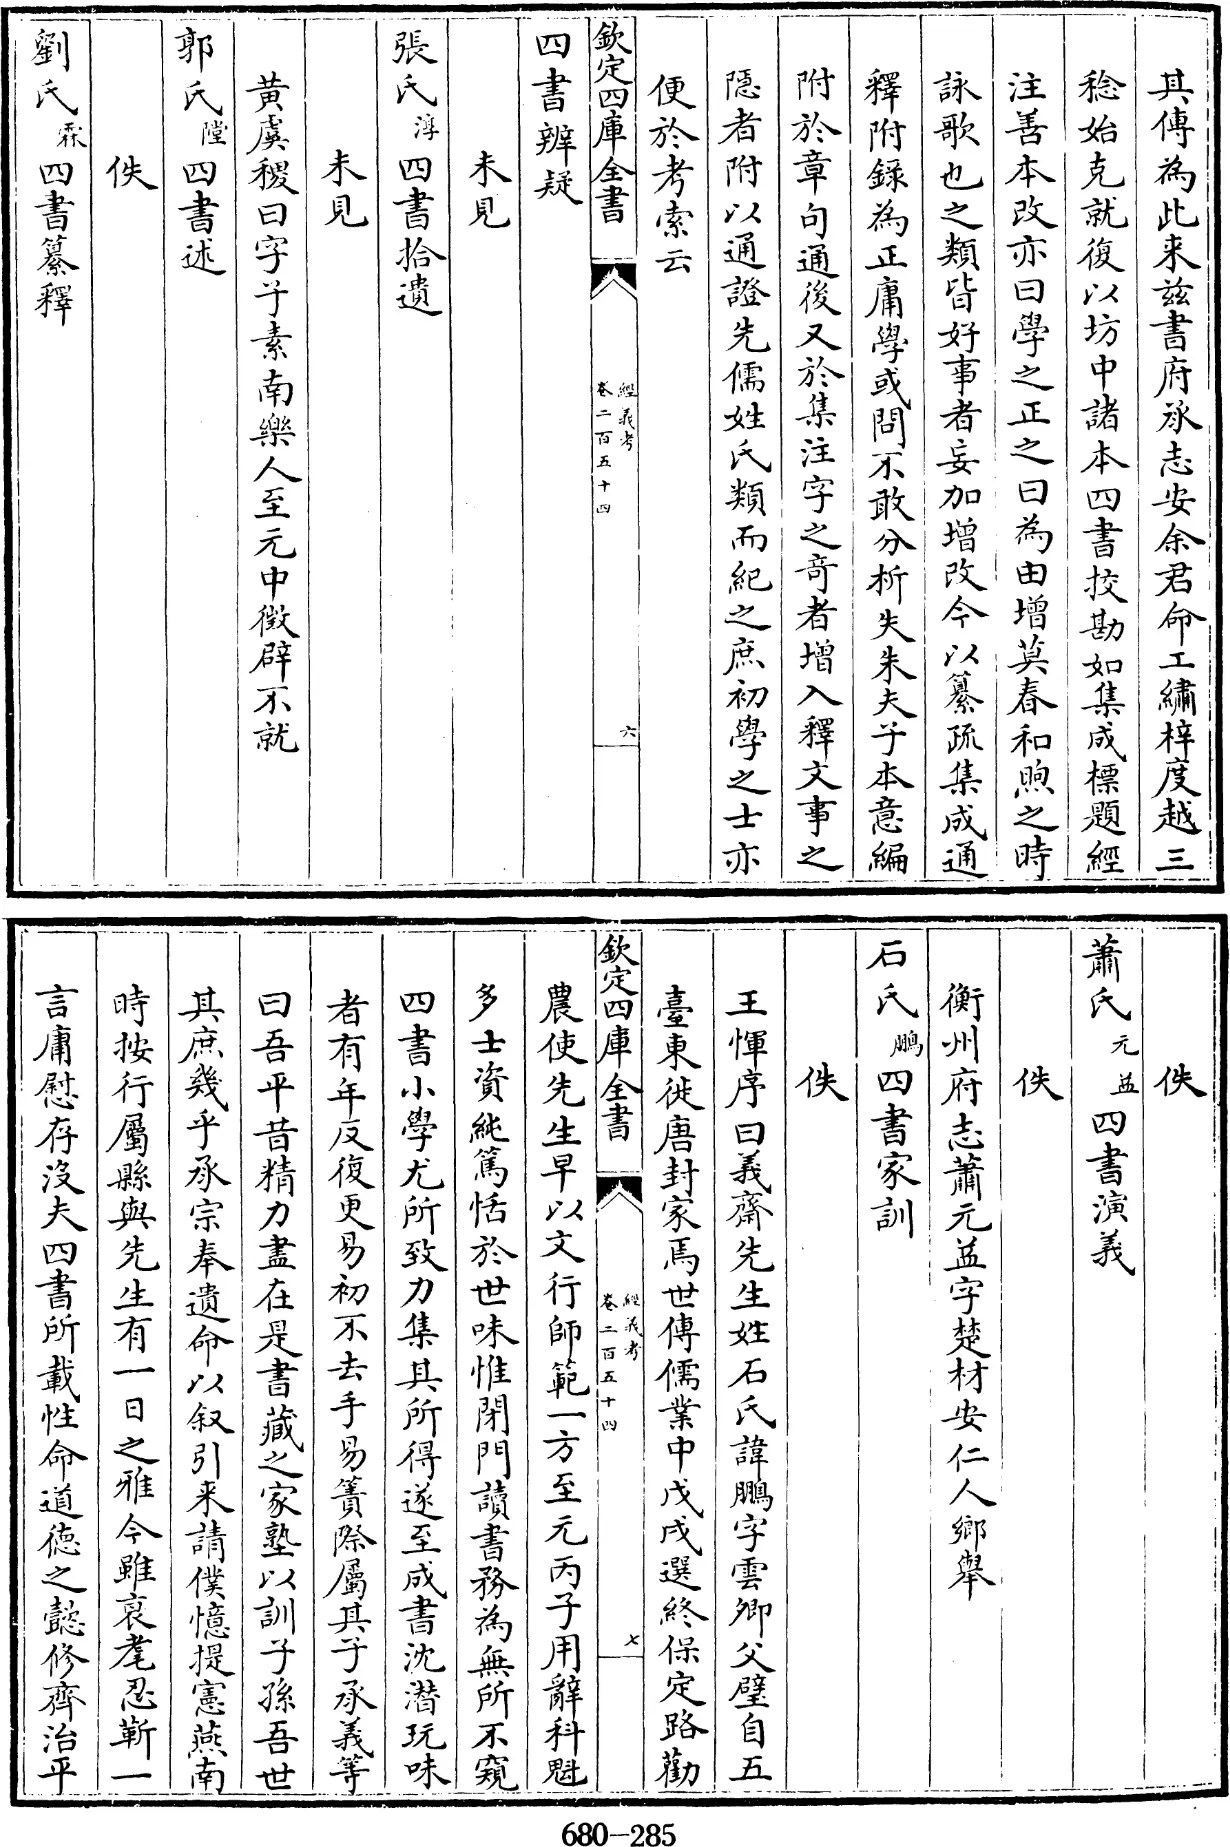 其傳為此来兹書府承志安余君命工繡梓度越三
稔始克就復以坊中諸本四書挍勘如集成標題經
注善本改亦曰學之正之曰為由增莫春和煦之時
詠歌也之類皆好事者妄加增改今以纂疏集成通
釋附錄為正庸學或問不敢分析失朱夫子本意編
附於章句通後又於集注字之竒者增入釋文事之
隠者附以通證先儒姓氏類而紀之庶初學之士亦
便於考索云
欽定四庫全書
經義考
卷二百五十四
六
四書辨疑
未見
張氏淳四書拾遺
未見
黄虞稷曰字子素南樂人至元中徵辟不就
郭氏隥四書述
佚
劉氏霖四書纂釋
佚
蕭氏元益四書演義
佚
衡州府志蕭元益字楚材安仁人鄉舉
石氏鵬四書家訓
佚
王惲序曰義齋先生姓石氏諱鵬字雲卿父璧自五
臺東徙唐封家焉世傳儒業中戊戌選終保定路勸
欽定四庫全書
經義考
卷二百五十四
七
農使先生早以文行師範一方至元丙子用辭科魁
多士資純篤恬於世味惟閉門讀書務為無所不窺
四書小學尤所致力集其所得遂至成書沈潜玩味
者有年反復更易初不去手易簀際屬其子承義等
曰吾平昔精力盡在是書藏之家塾以訓子孫吾世
其庶幾乎承宗奉遺命以叙引来請僕憶提憲燕南
時按行屬縣與先生有一日之雅今雖衰耄忍靳一
言庸慰存沒夫四書所載性命道徳之懿修齊治平
680-285